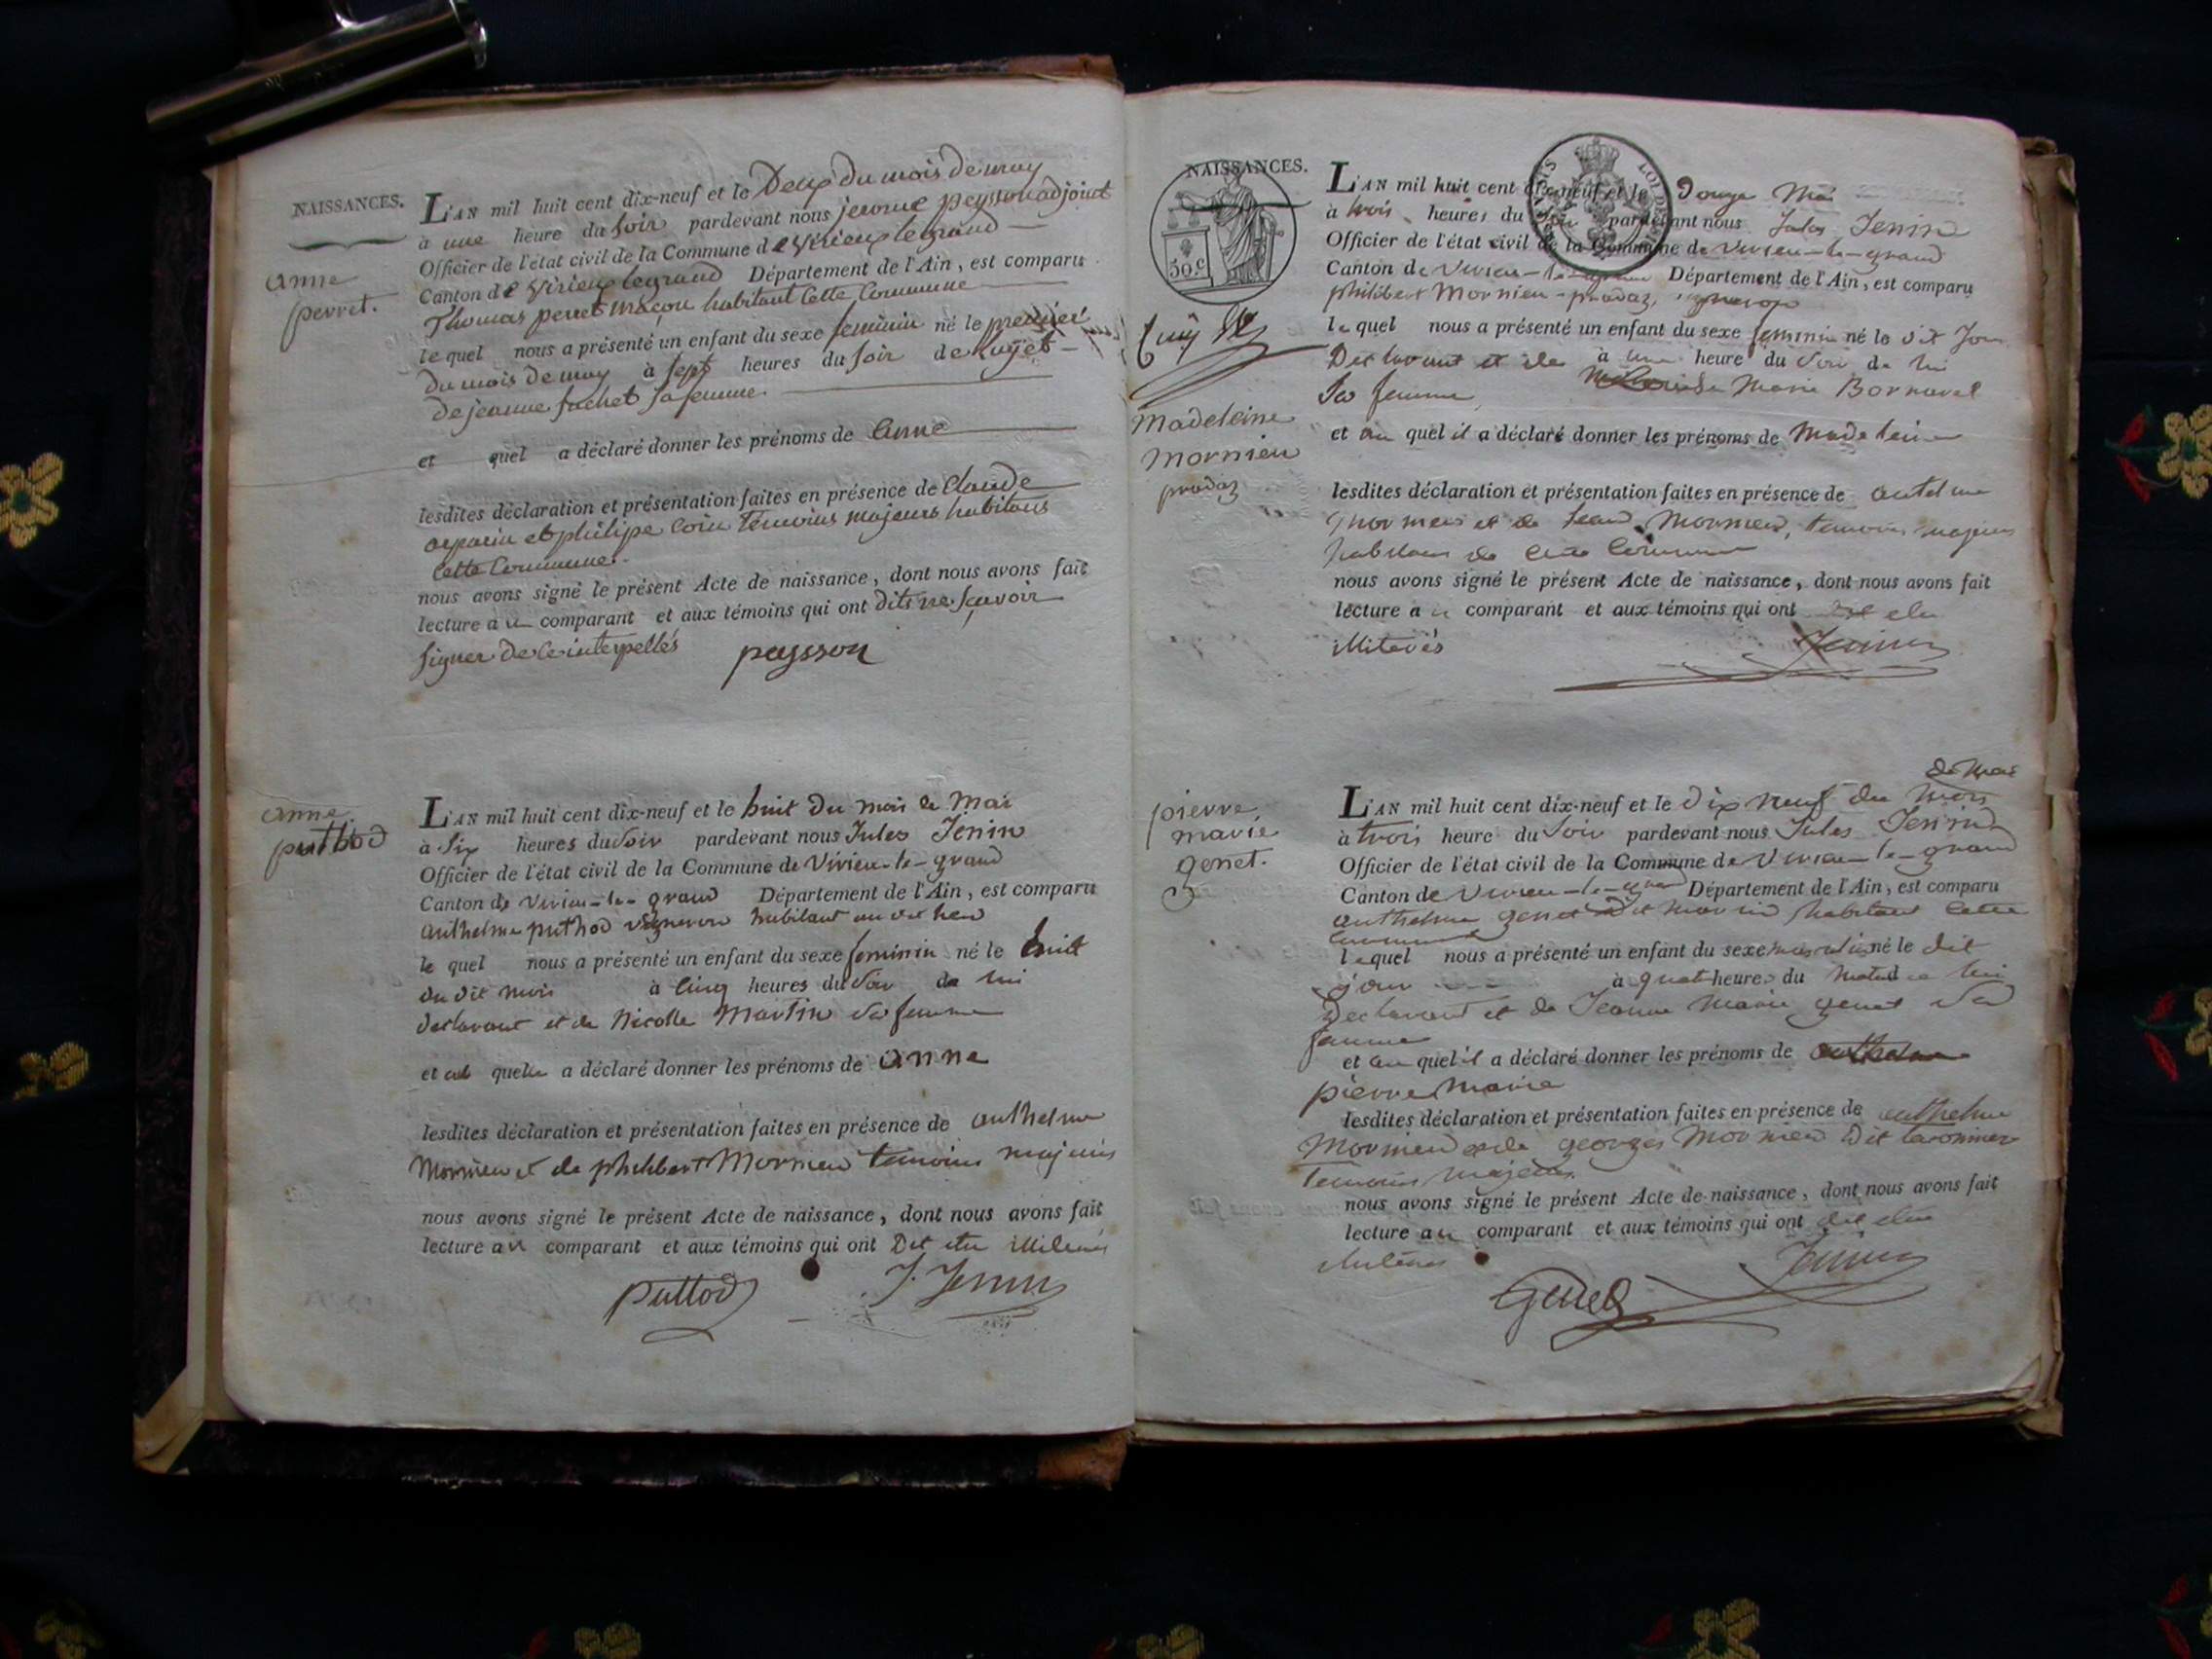 NAISSANCES.
anne
perret.
L'AN mil huit cent dix-neuf et le Deux du mois de may
à une heure du soir pardevant nous jerome peysson adjoint
Officier de l'état civil de la Commune de Virieux legrand
Canton de Virieux legrand Département de l'Ain, est comparu
Thomas perret maçon habitant cette Commune
lequel nous a présenté un enfant du sexe feminin né le premier
du mois de may à sept heures du soir de
de jeanne sa femme.
et quel a déclaré donner les prénoms de anne
lesdites déclaration et présentation faites en présence de Claude
et philipe temoins majeurs habitans
cette Commune.
nous avons signé le présent Acte de naissance, dont nous avons fait
lecture au comparant et aux témoins qui ont dits ne sçavoir
signer de ce interpellés
peysson
anne
puthod
L'AN mil huit cent dix-neuf et le huit du mois de Mai
à Six heures du Soir pardevant nous Jules Jenin
Officier de l'état civil de la Commune de Virieu-le-grand
Canton de Virieu-le-grand Département de l'Ain, est comparu
anthelme puthod vigneron habitant au dit lieu
le quel nous a présenté un enfant du sexe feminin né le huit
du dit mois à Cinq heures du Soir de lui
declarant et de Nicolle Martin sa femme
et quelle a déclaré donner les prénoms de anne
lesdites déclaration et présentation faites en présence de anthelme
Mornieu et de philibert Mornieu temoins majeurs
nous avons signé le présent Acte de naissance, dont nous avons fait
lecture au comparant et aux témoins qui ont Dit etre
Puttod J. Jenin
NAISSANCES.
50 c
Madeleine
Mornieu
prodaz
L'AN mil huit cent dix-neuf et le Douze Mai
à trois heures du Soir pardevant nous Jules Jenin
Officier de l'état civil de la Commune de Virieu-le-grand
Canton de Virieu-le-grand Département de l'Ain, est comparu
philibert Mornieu-prodaz, vigneron
lequel nous a présenté un enfant du sexe feminin né le dit Jour
à une heure du Soir de lui
Declarant et de Marie Bornarel
Sa femme
et au quel il a déclaré donner les prénoms de Madeleine
lesdites déclaration et présentation faites en présence de antelme
Mornieu et de Jean Mornieu, temoins majeurs
habitans de cette Commune
nous avons signé le présent Acte de naissance, dont nous avons fait
lecture au comparant et aux témoins qui ont dit etre
illiterés
Jenin
pierre
marie
genet.
de Mai
L'AN mil huit cent dix-neuf et le dix neuf du mois
à trois heure du Soir pardevant nous Jules Jenin
Officier de l'état civil de la Commune de Virieu-le-grand
Canton de Virieu-le-grand Département de l'Ain, est comparu
anthelme genet dit habitant cette
Commune
lequel nous a présenté un enfant du sexe masculin né le dit
jour à quatre heures du matin de lui
Declarant et de Jeanne Marie genet Sa
femme
et au quel il a déclaré donner les prénoms de anthelme
pierre Marie
lesdites déclaration et présentation faites en présence de anthelme
Mornieu et de georges Mornieu dit
temoins majeurs.
nous avons signé le présent Acte de naissance, dont nous avons fait
lecture au comparant et aux témoins qui ont dit etre
Jenin
Genet